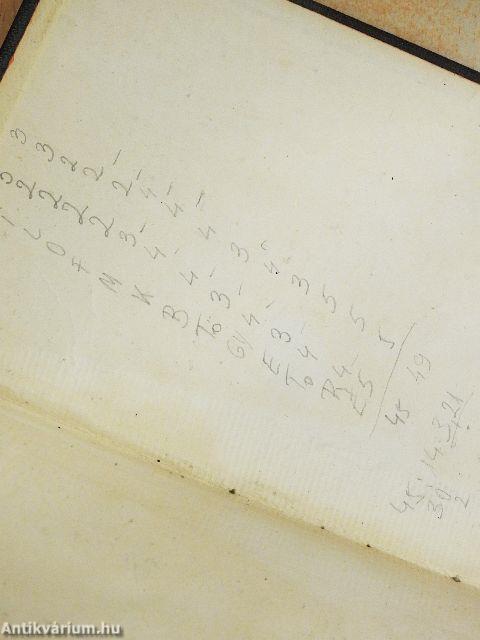 3 3
I 2 3
L 2 2
O 2 2-
F 2 2-
M 3- 4-
K 4- 4-
B 4- 4
Tö 3- 3
Gy 4- 4
E 3- 3
Tö 4 5
R 4 5
5 5
45 49
45:14=3,21
30
2